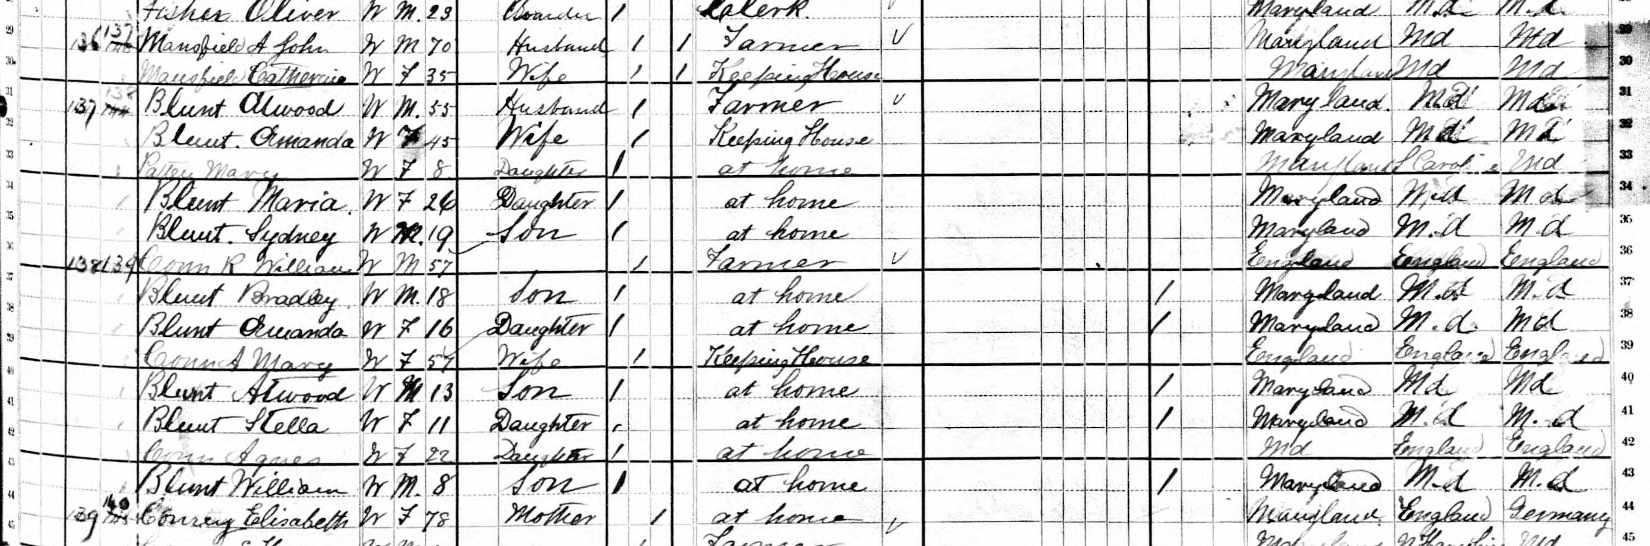 Fisher Oliver W M. 23 Boarder 1 Clerk. Maryland Md. M.d
29 136 137 Mansfield A John W M 70 Husband 1 1 Farmer Maryland Md Md 29
30 Mansfield Catherine W F 35 Wife 1 1 Keeping House Maryland Md Md 30
31 137 138 Blunt Atwood W M. 55 Husband 1 Farmer Maryland. M.d Md 31
32 Blunt. Amanda W F 45 Wife 1 Keeping House Maryland Md Md 32
33 Mary W F 8 Daughter 1 at home Maryland S Carol Md 33
34 Blunt Maria. W F 26 Daughter 1 at home Maryland M.d Md 34
35 Blunt. Sydney W M. 19 Son 1 at home Maryland M.d M.d 35
36 138 139 Conn R William W M 57 1 Farmer England England England 36
37 Blunt Bradley. W M. 18 Son 1 at home 1 Maryland M.d M.d 37
38 Blunt Amanda W F 16 Daughter 1 at home 1 Maryland M.d. Md 38
39 Conn A Mary W F 57 Wife 1 Keeping House England England England 39
40 Blunt Atwood W M 13 Son 1 at home 1 Maryland Md Md 40
41 Blunt Stella W F 11 Daughter 1 at home 1 Maryland M.d M.d 41
42 Conn Agnes W F 22 Daughter 1 at home Md England England 42
43 Blunt William W M. 8 Son 1 at home 1 Maryland M.d M.d 43
44 139 140 Elisabeth W F 78 Mother 1 at home Maryland. England Germany 44
45 Farmer Md Md 45